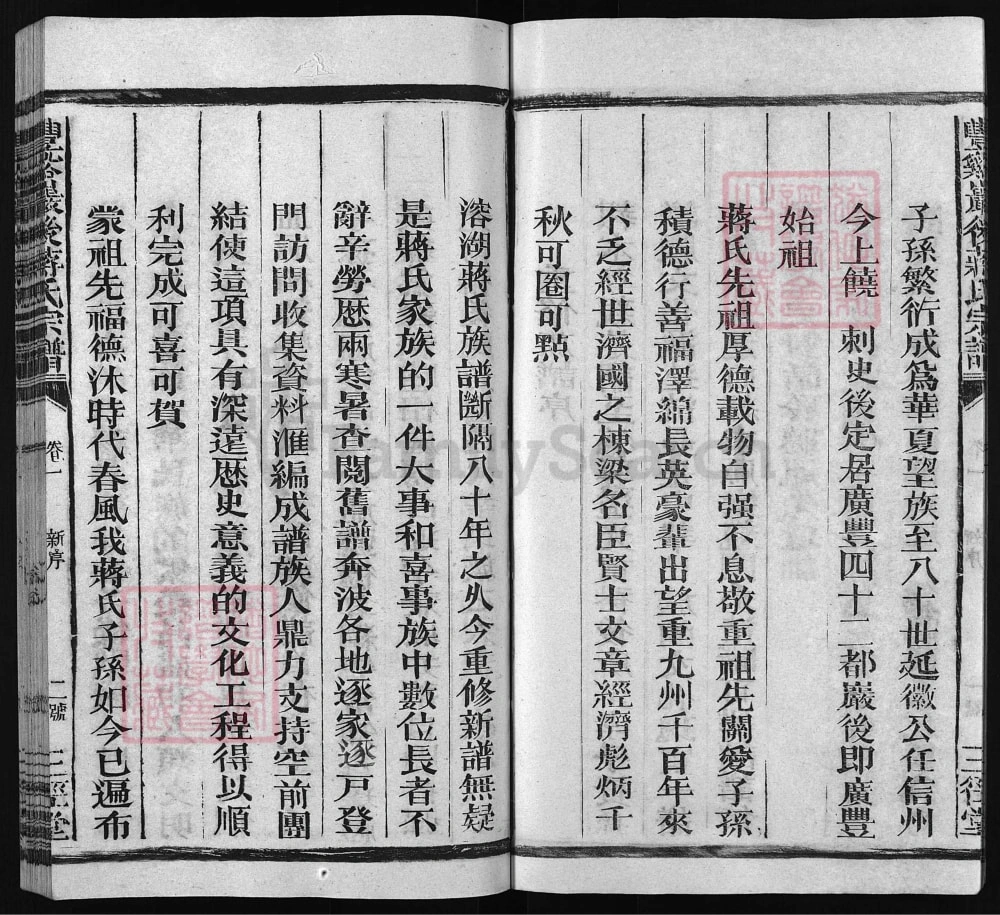 子孫繁衍成爲華夏望族至八十世延徽公任信州
今上饒 刺史後定居廣豐四十二都巖後即廣豐
始祖
蔣氏先祖厚德載物自强不息敬重祖先關愛子孫
積德行善福澤綿長英豪輩出望重九州千百年來
不乏經世濟國之棟梁名臣賢士文章經濟彪炳千
秋可圈可點
溶湖蔣氏族譜斷隔八十年之久今重修新譜無疑
是蔣氏家族的一件大事和喜事族中數位長者不
辭辛勞歷兩寒暑查閱舊譜奔波各地逐家逐戸登
門訪問收集資料滙編成譜族人鼎力支持空前團
結使這項具有深遠歷史意義的文化工程得以順
利完成可喜可賀
蒙祖先福德沐時代春風我蔣氏子孫如今已遍布
豐谿巖後蔣氏宗譜 卷一 新序 二號 三徑堂
FamilySearch